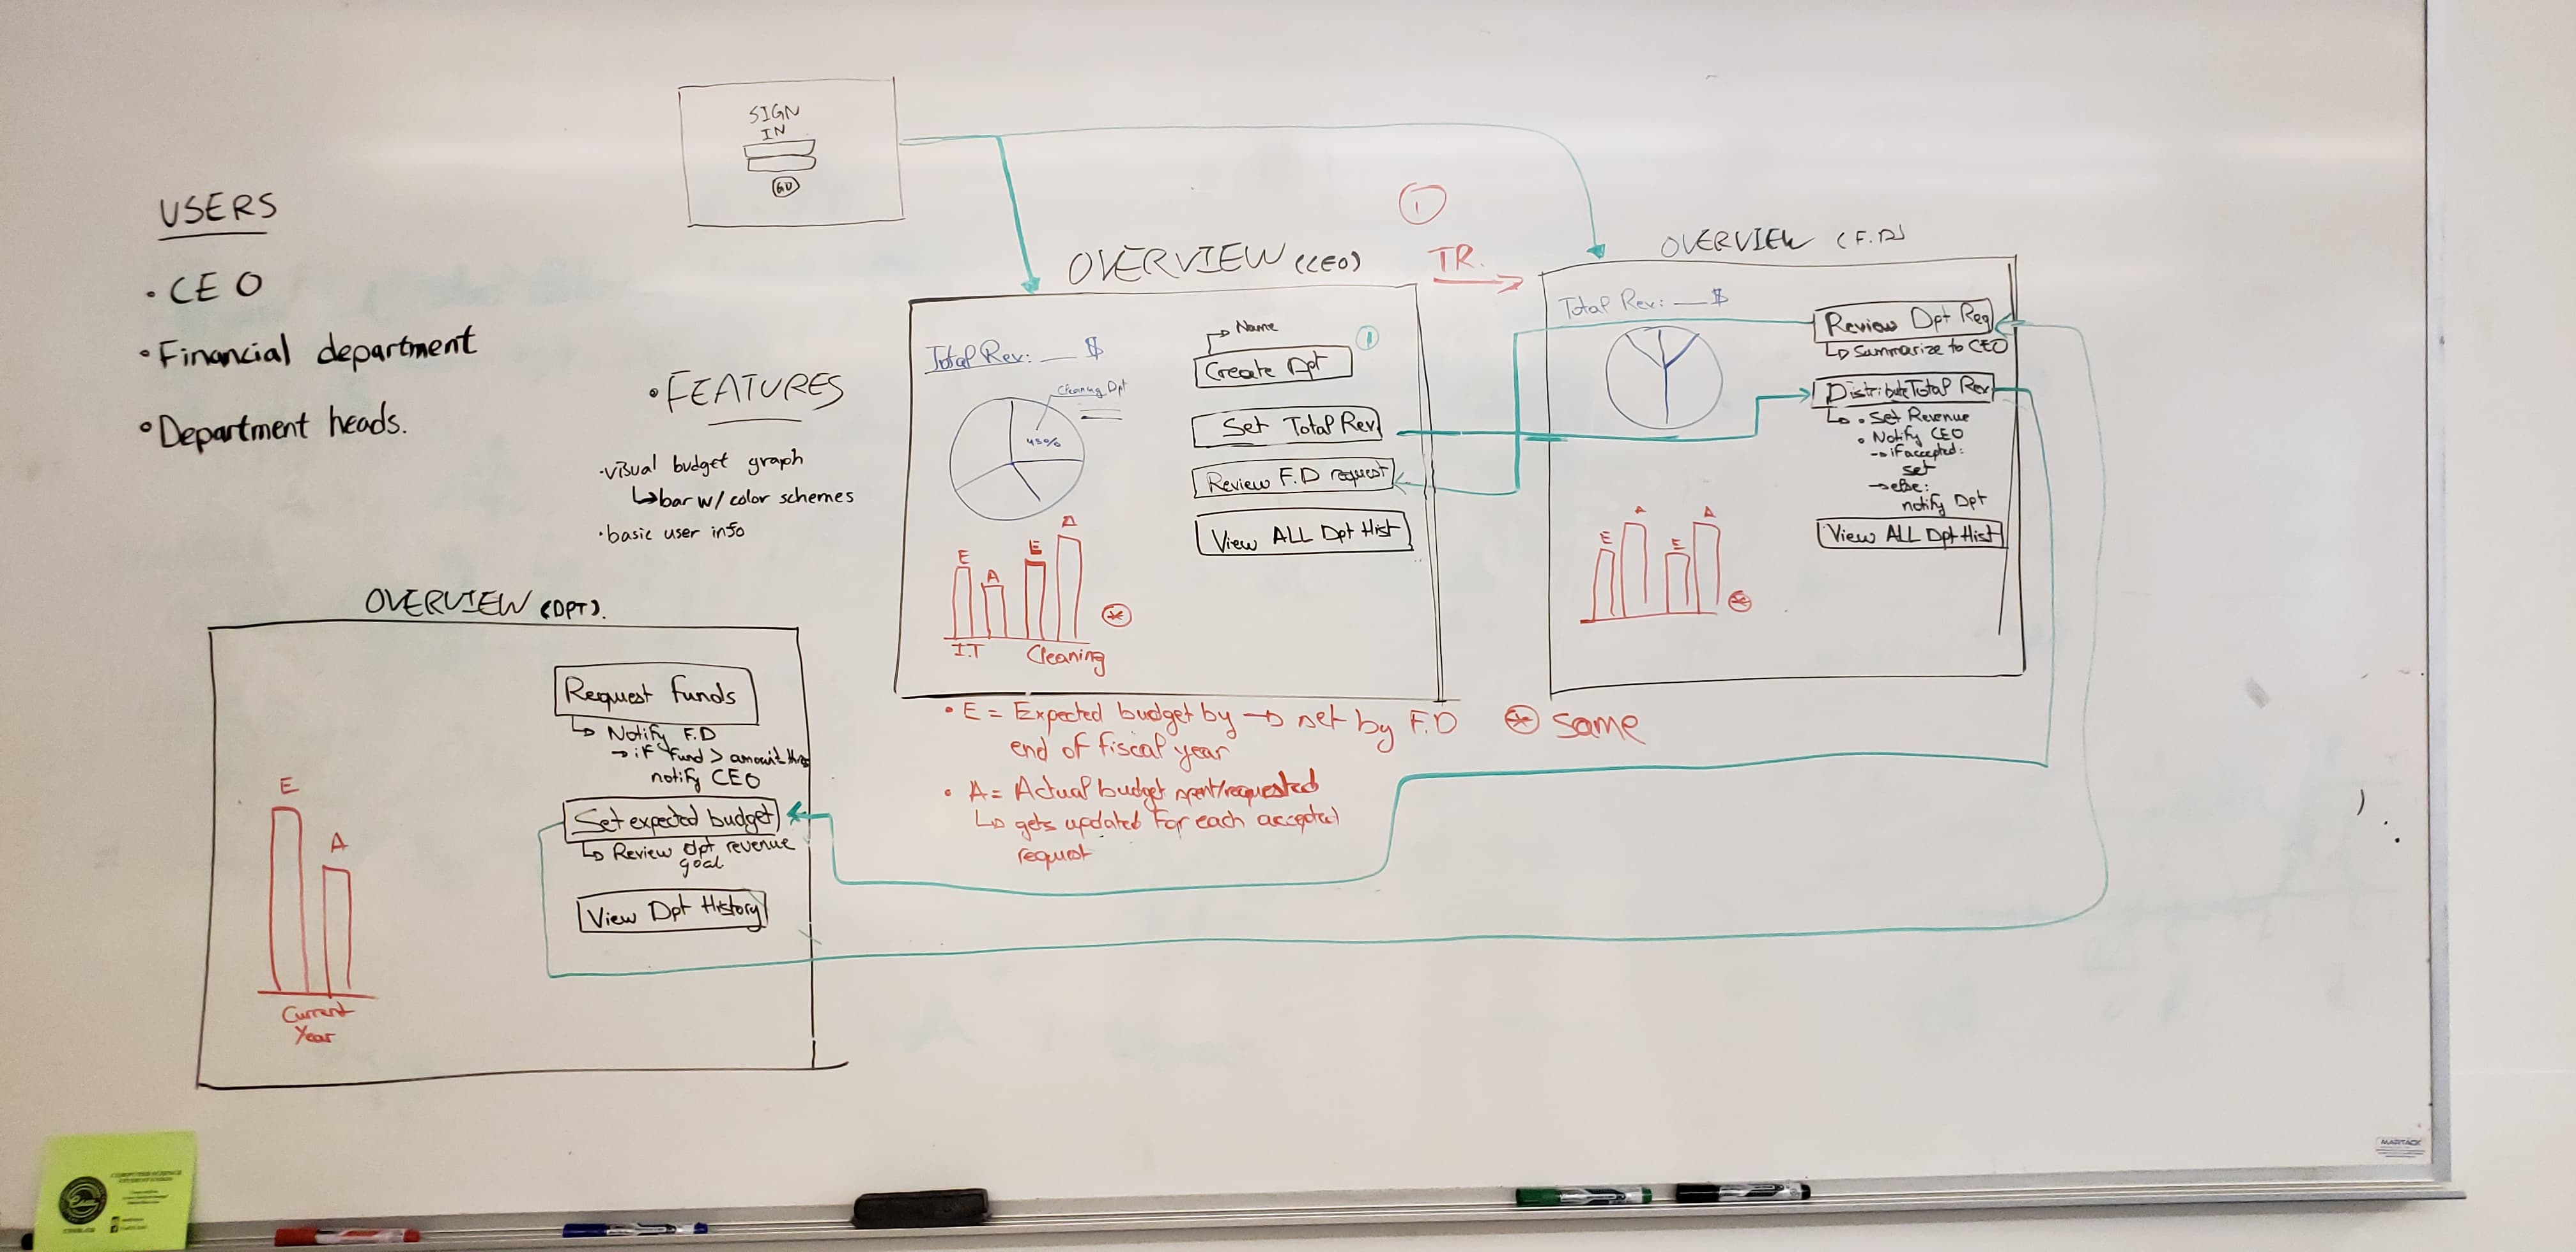 SIGN
IN
GO
USERS
• CEO
• Financial department
• Department heads.
• FEATURES
• visual budget graph
↳ bar w/ color schemes
• basic user info
OVERVIEW (CEO)
Total Rev: __ $
Cleaning Dpt
45%
Name
1
Create Dpt
Set Total Rev
Review F.D request
View ALL Dpt Hist
E
A
E
A
I.T
Cleaning
1
TR.
OVERVIEW (F.D)
Total Rev: __ $
Review Dpt Req
↳ Summarize to CEO
Distribute Total Rev
↳ • Set Revenue
• Notify CEO
→ if accepted:
set
→ else:
notify Dpt
View ALL Dpt Hist
E
A
E
A
• E = Expected budget by → set by F.D
end of fiscal year
* same
• A = Actual budget spent/requested
↳ gets updated for each accepted
request
OVERVIEW (DPT).
Request funds
↳ Notify F.D
→ if fund > amount
notify CEO
Set expected budget
↳ Review dpt revenue
goal
View Dpt History
E
A
Current
Year
COMPUTER SCIENCE